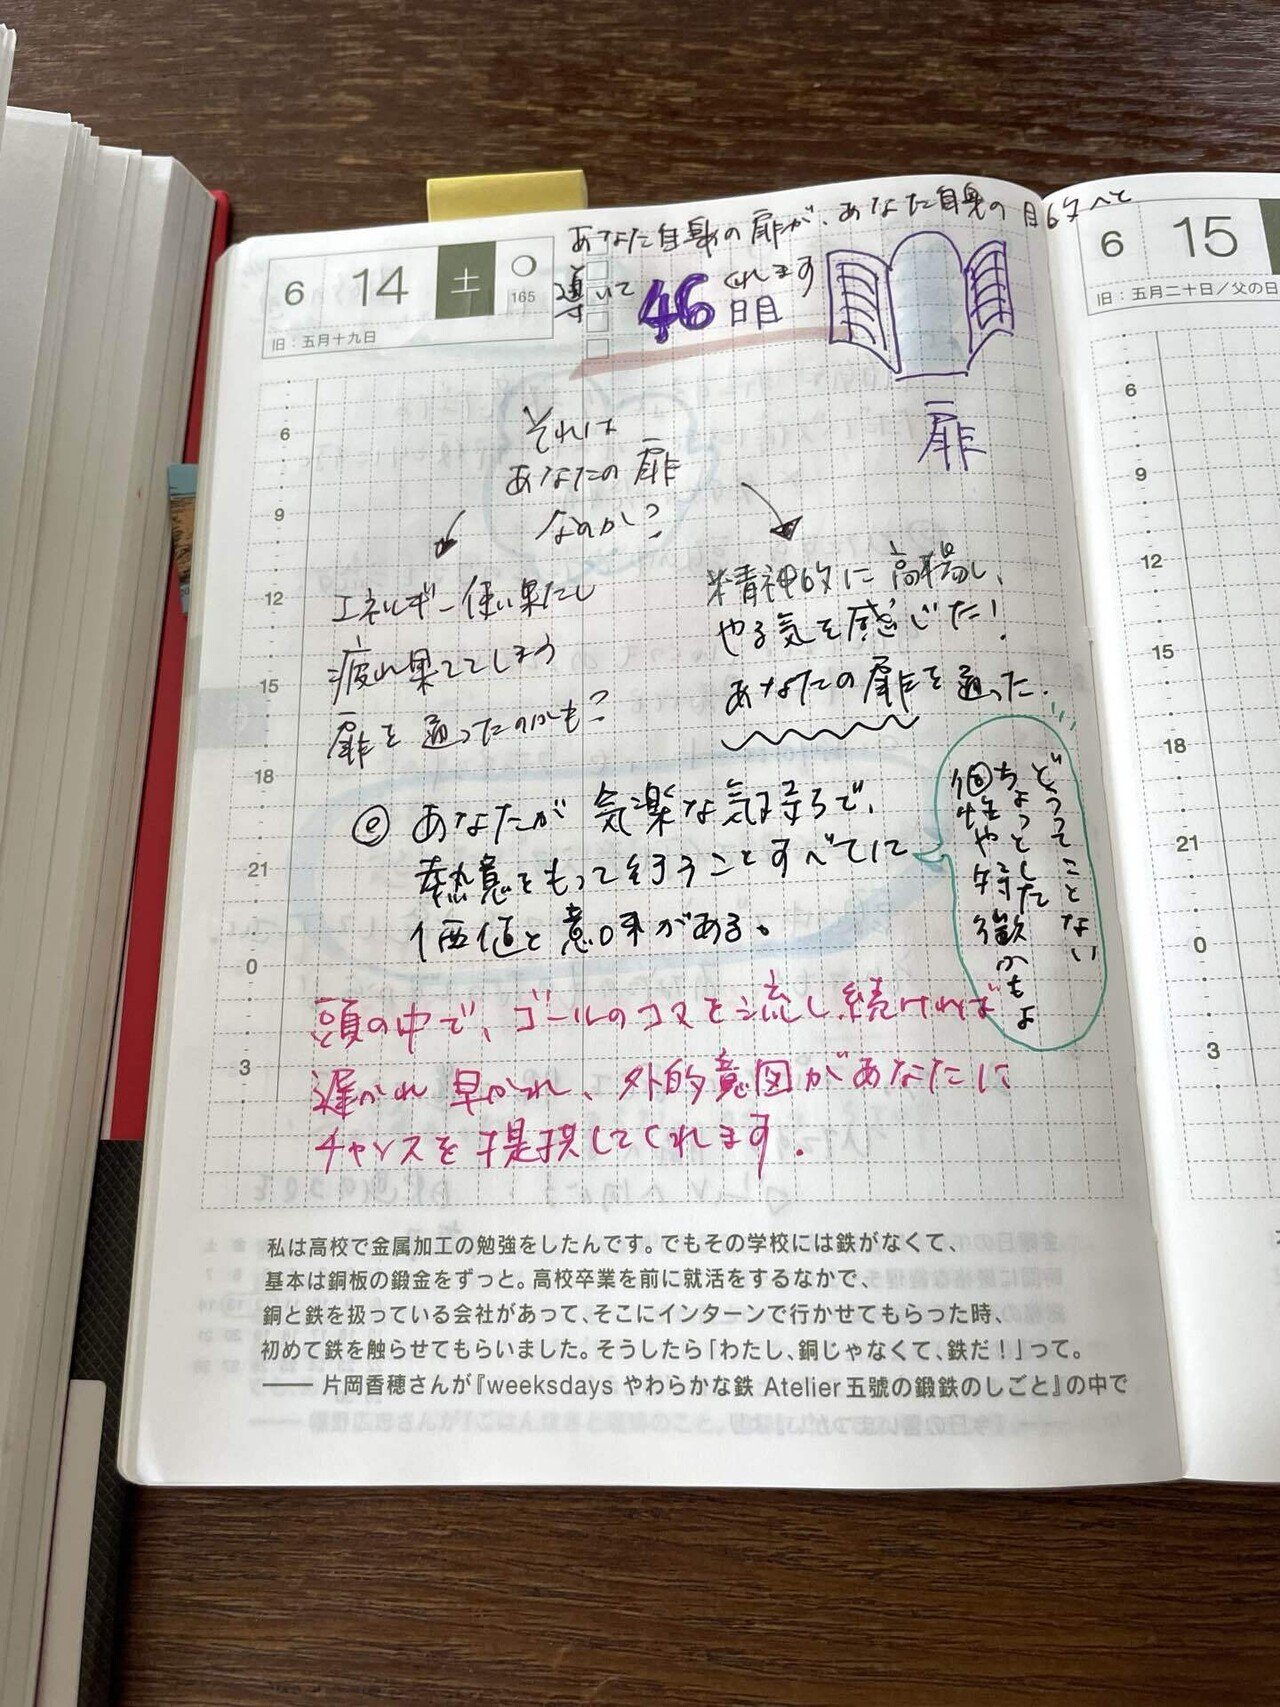 あなた自身の扉が、あなた自身の目的へと
導いて
くれます
6 14 土
165
旧：五月十九日
46日目
扉
それは
あなたの扉
なのか？
エネルギー使い果たし
疲れ果ててしまう
扉を通ったのかも？
精神的に高揚し、
やる気を感じた！
あなたの扉を通った.
あなたが気楽な気持ちで、
熱意をもって行うことすべてに
価値と意味がある。
どうってことない
ちょっとした
個性や特徴かもよ
頭の中で、ゴールのコマを流し続ければ
遅かれ早かれ、外的意図があなたに
チャンスを提供してくれます.
6
9
12
15
18
21
0
3
私は高校で金属加工の勉強をしたんです。でもその学校には鉄がなくて、
基本は銅板の鍛金をずっと。高校卒業を前に就活をするなかで、
銅と鉄を扱っている会社があって、そこにインターンで行かせてもらった時、
初めて鉄を触らせてもらいました。そうしたら「わたし、銅じゃなくて、鉄だ！」って。
—— 片岡香穂さんが『weeksdays やわらかな鉄 Atelier五號の鍛鉄のしごと』の中で
6 15
旧：五月二十日／父の日
6
9
12
15
18
21
0
3